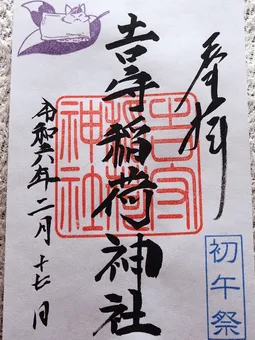 奉拝
吉守稲荷神社
吉守稲荷神社
初午祭
令和六年二月十七日